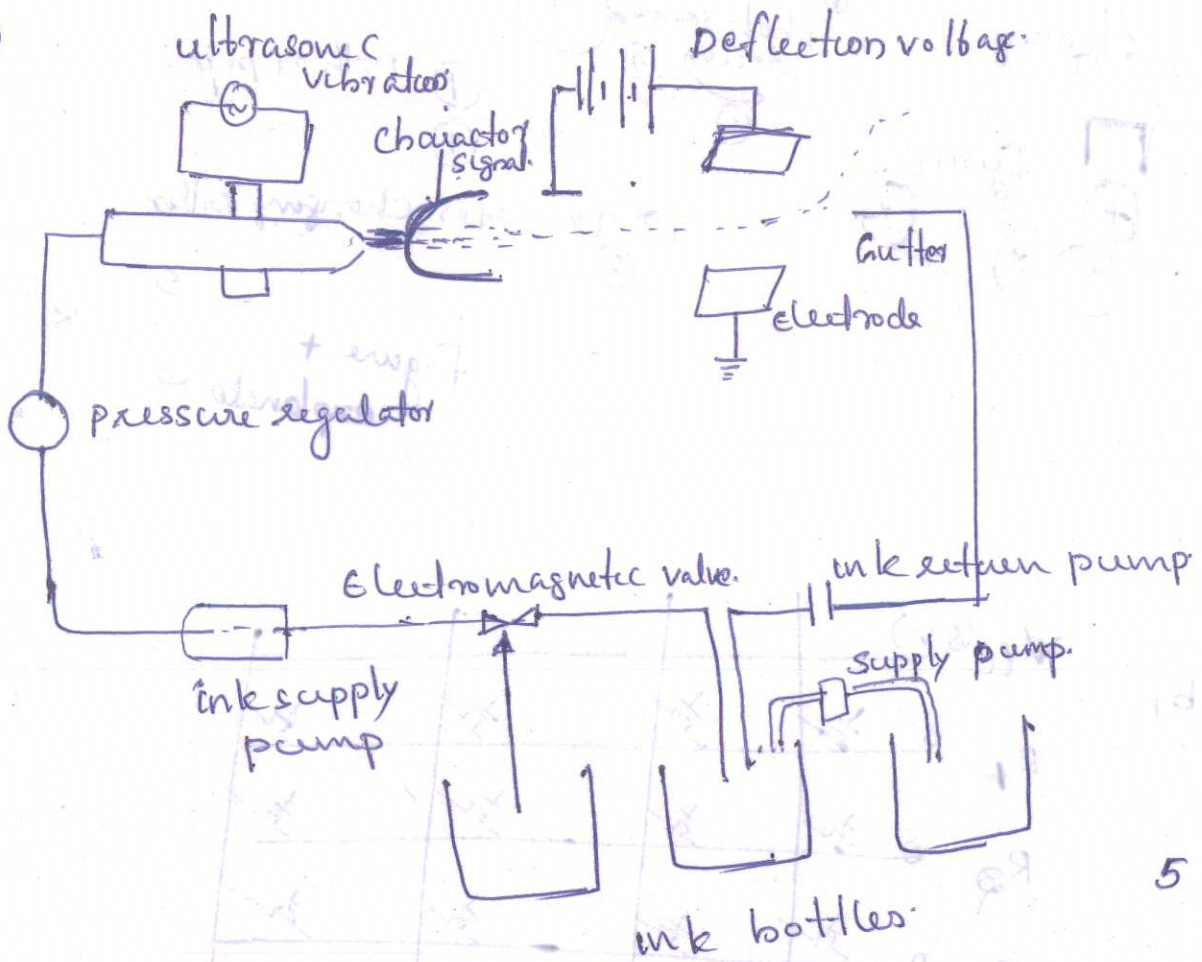 ultrasonic
vibration
Deflection voltage.
charactor
signal.
~
Gutter
electrode
pressure regulator
Figure +
Electromagnetic valve.
ink return pump
supply pump.
ink supply
pump
5
ink bottles.